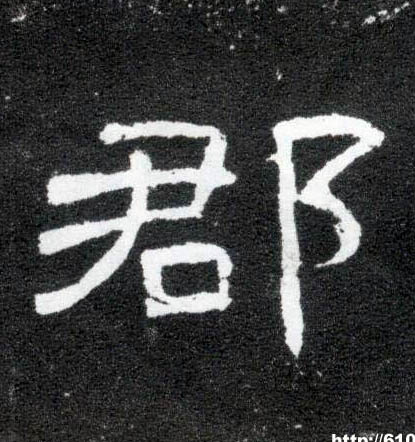 郡
http://610